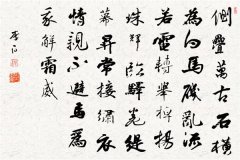 側疊萬古石橫
為白馬磯亂流
若電轉舉棹揚
珠輝臨驛卷緹
幕昇堂接繡衣
情親不避馬為
我解霜威